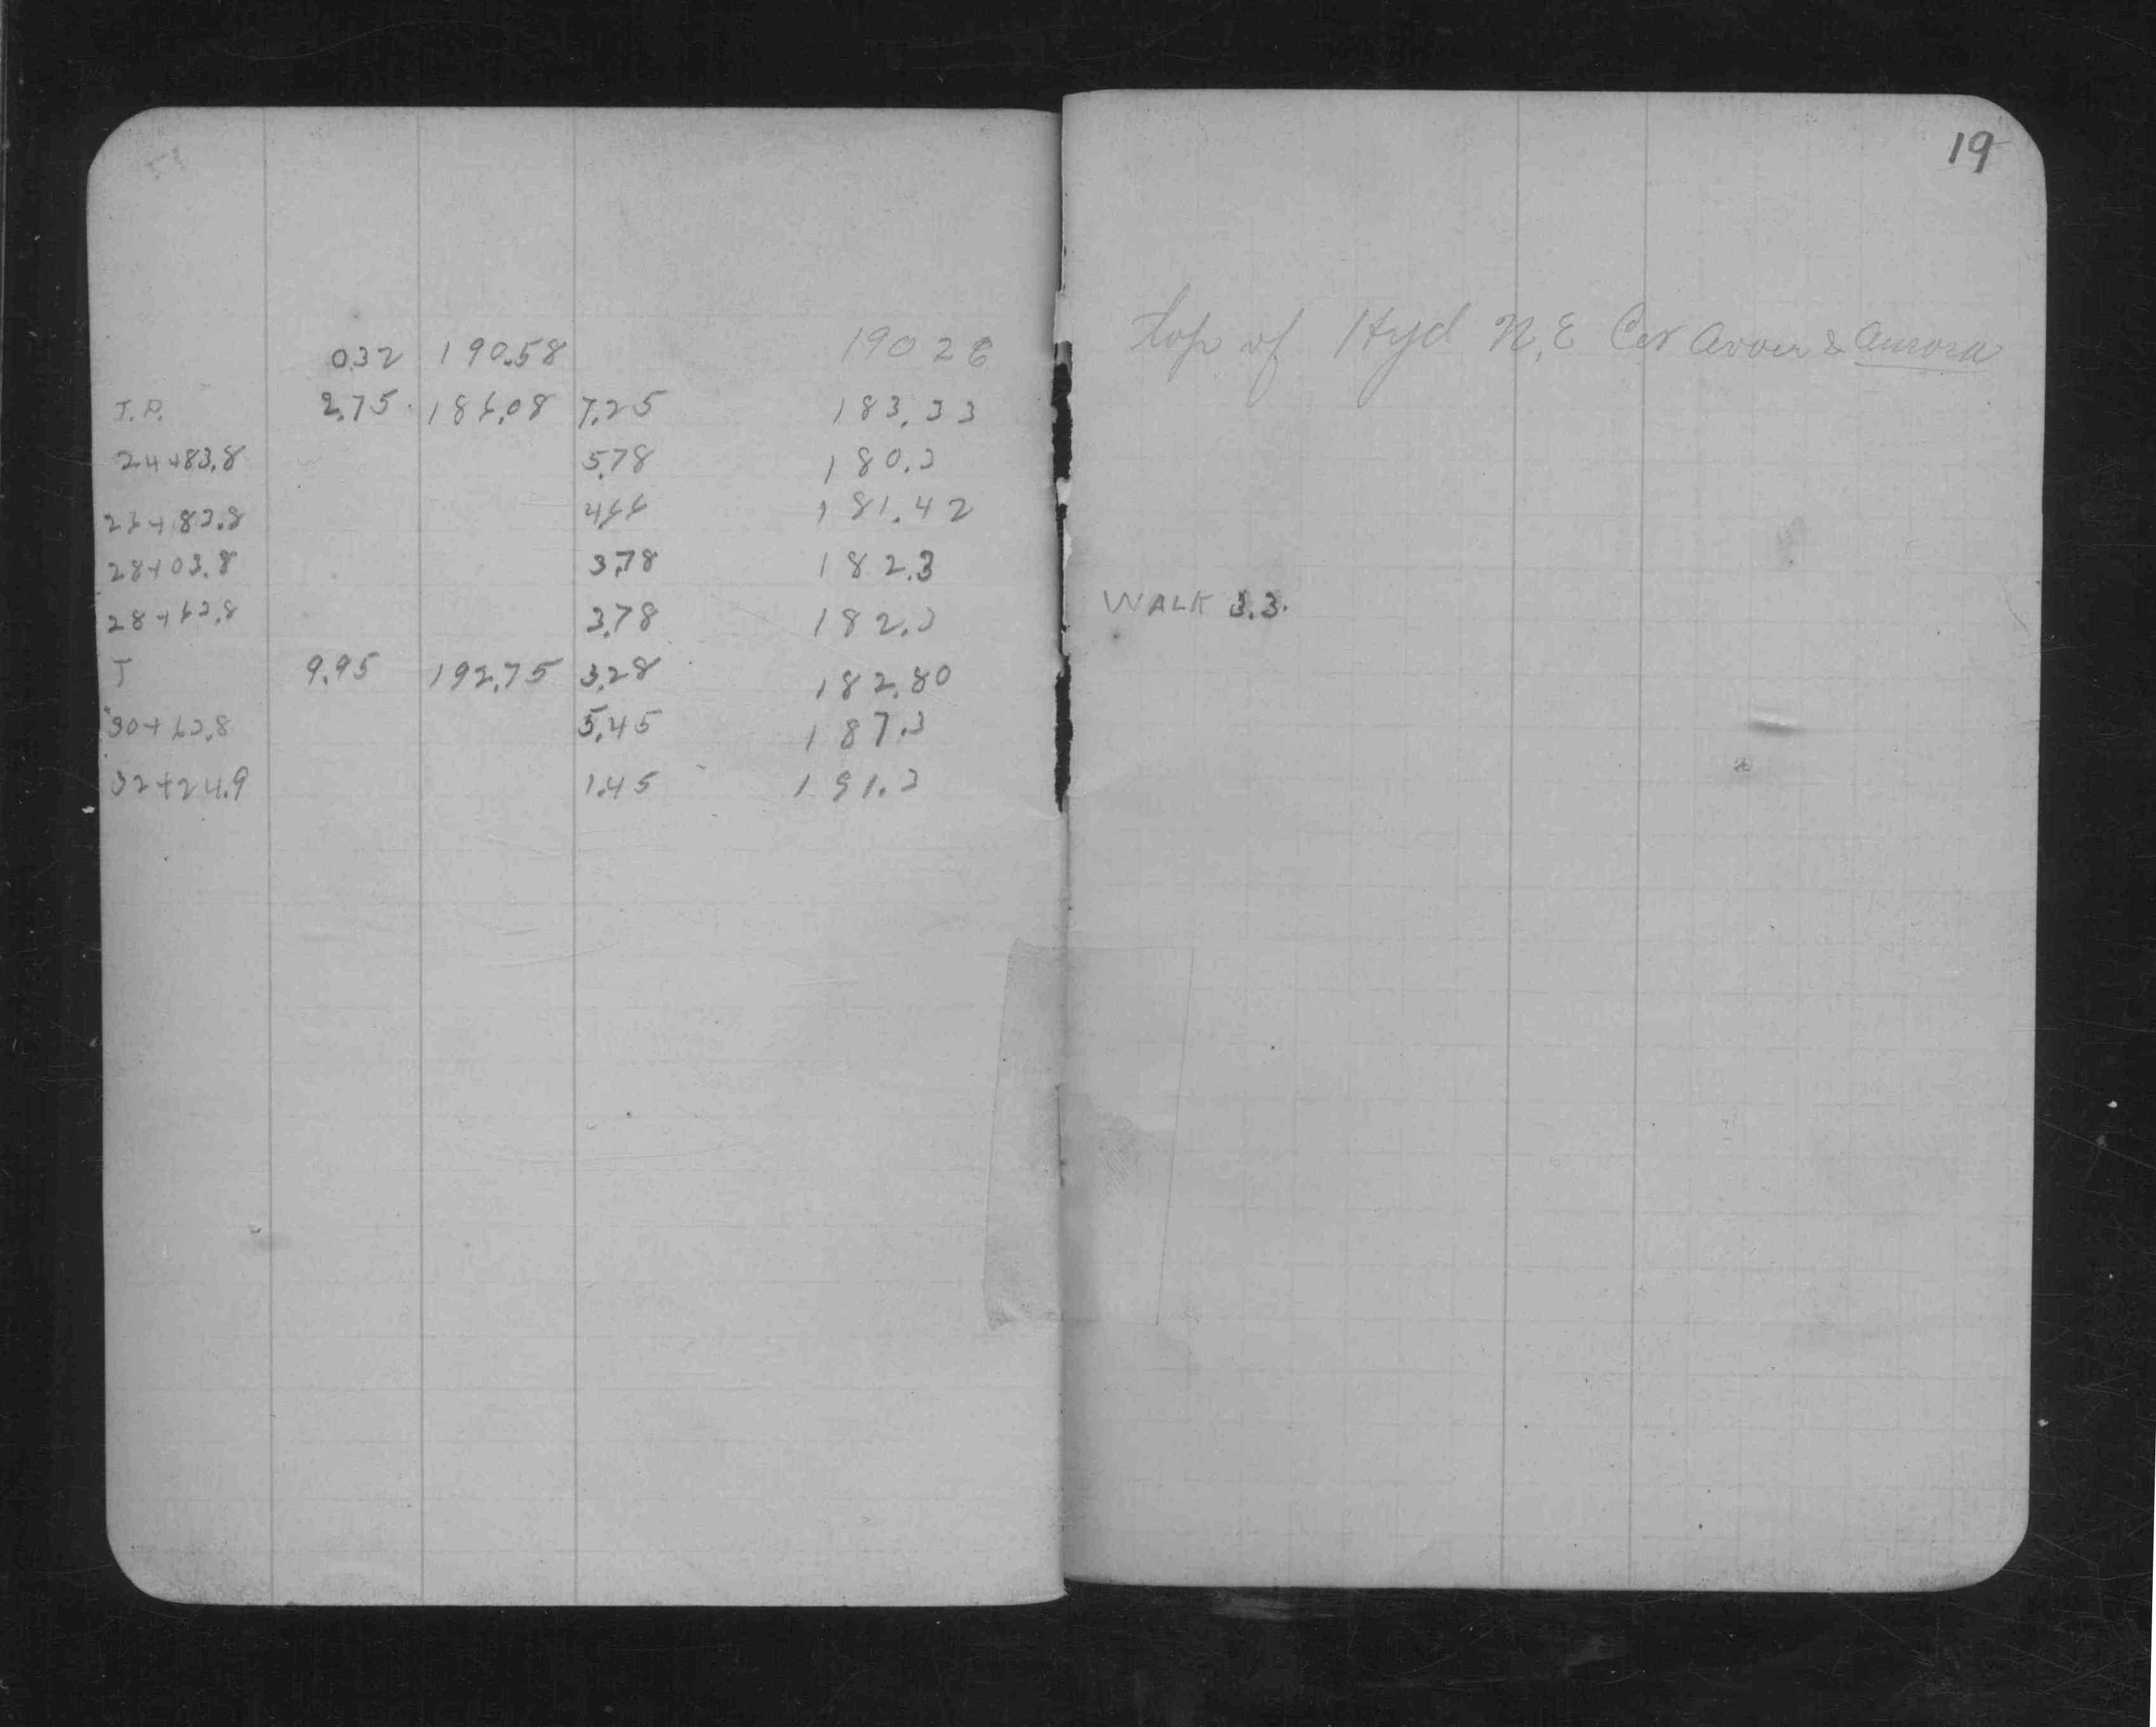 19
0.32 190.58 190 26 top of Hyd N.E Cor & Aurora
T.P. 2.75 186.08 7.25 183.33
24+83.8 5.78 180.3
26+83.8 4.66 181.42
28+03.8 3.78 182.3
28+63.8 3.78 182.3 WALK 3.3.
T 9.95 192.75 3.28 182.80
30+63.8 5.45 187.3
32+24.9 1.45 191.3